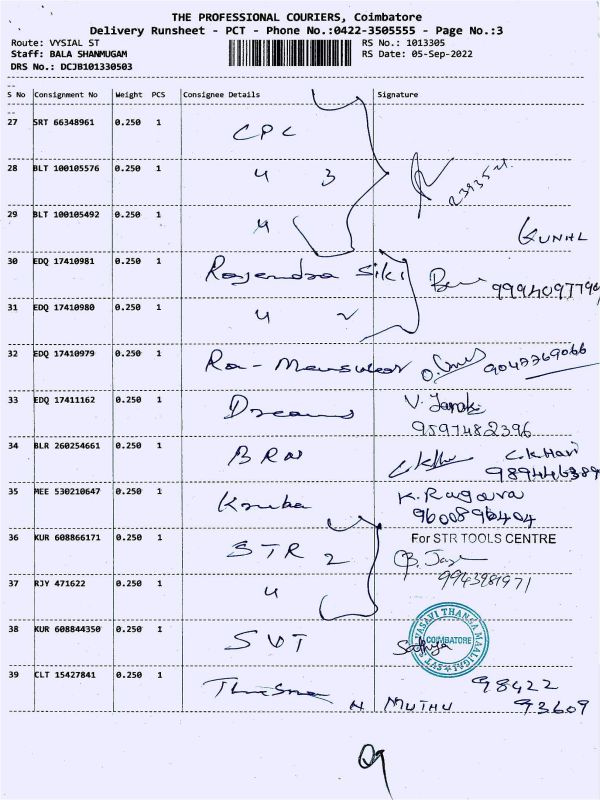 THE PROFESSIONAL COURIERS, Coimbatore
Delivery Runsheet - PCT - Phone No.:0422-3505555 - Page No.:3
Route: VYSIAL ST RS No.: 1013305
Staff: BALA SHANMUGAM RS Date: 05-Sep-2022
DRS No.: DCJB101330503
S No Consignment No Weight PCS Consignee Details Signature
27 SRT 66348961 0.250 1 CPC
28 BLT 100105576 0.250 1 " 3
29 BLT 100105492 0.250 1 "
KUNHL
30 EDQ 17410981 0.250 1 Rajendra Siki
9994097790
31 EDQ 17410980 0.250 1 " 2
32 EDQ 17410979 0.250 1 Ra - Menswear 9047769066
33 EDQ 17411162 0.250 1 Dreams V. Janaki
9597482396
34 BLR 260254661 0.250 1 BRN C.K. Hari
9894446389
35 MEE 530210647 0.250 1 K. Ragava
9600896404
36 KUR 608866171 0.250 1 STR 2 For STR TOOLS CENTRE
37 RJY 471622 0.250 1 " 9943981971
38 KUR 608844350 0.250 1 SVT Sathya
SVT VASAVI THANGA MAALIGAI
COIMBATORE
39 CLT 15427841 0.250 1 98422
N MUTHU 93609